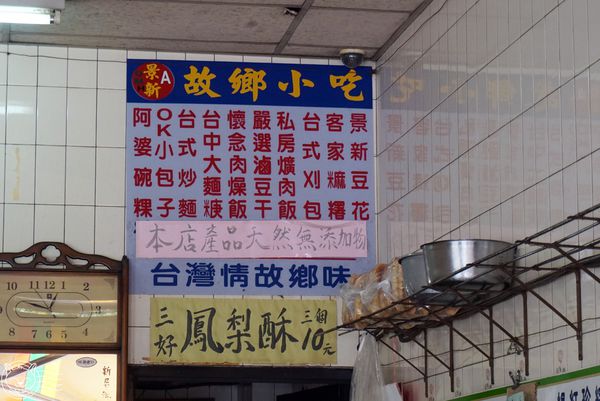 景新 A 故鄉小吃
景新豆花
客家麻糬
台式刈包
私房爌肉飯
嚴選滷豆干
懷念肉燥飯
台中大麵焿
台式炒麵
OK小包子
阿婆碗粿
本店產品天然無添加物
台灣情故鄉味
三好鳳梨酥三個10元